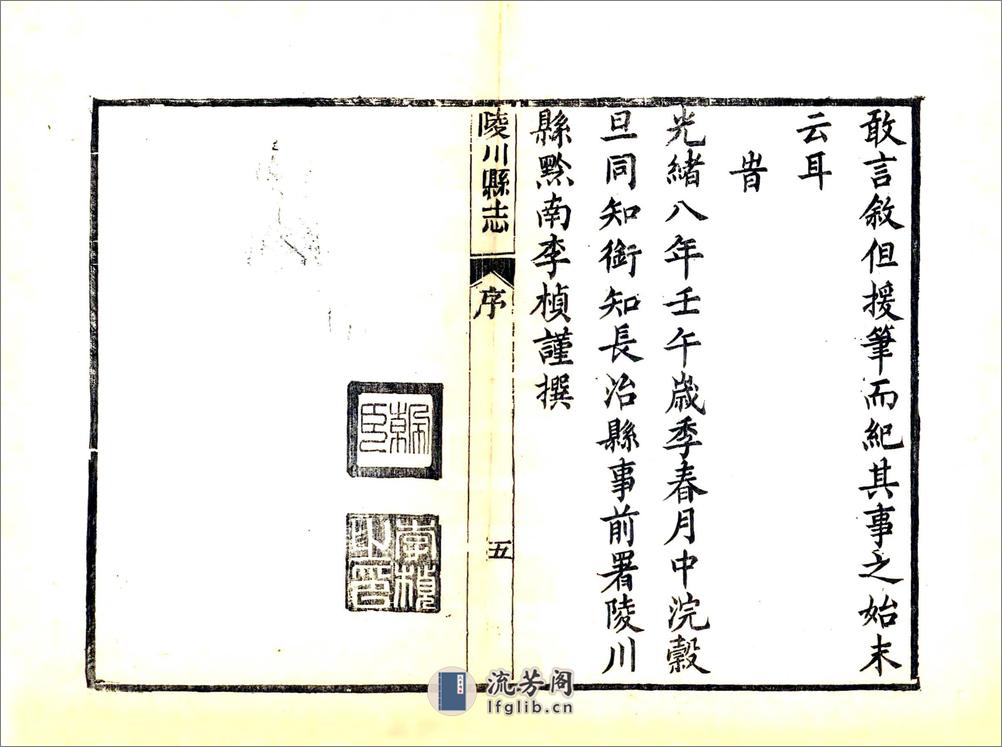 敢言敘但援筆而紀其事之始末
云耳
旹
光緒八年壬午歲季春月中浣穀
旦同知銜知長治縣事前署陵川
縣黔南李楨謹撰
陵川縣志
序
五
李楨之
流芳阁
lfglib.cn